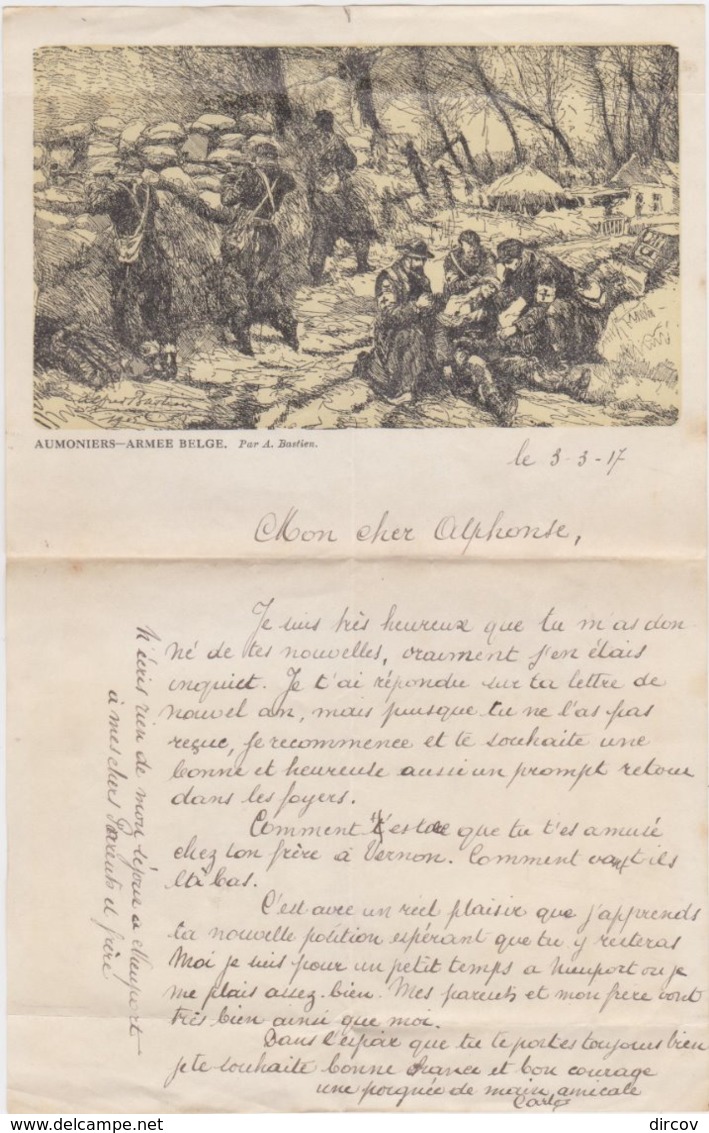 Alfred Bastien
AUMONIERS—ARMEE BELGE. Par A. Bastien.
le 3-3-17
Mon cher Alphonse,
Je suis très heureux que tu m'as don-
né de tes nouvelles, vraiment j'en étais
inquiet. Je t'ai répondu sur ta lettre de
nouvel an, mais puisque tu ne l'as pas
reçue, je recommence et te souhaite une
bonne et heureuse aussi un prompt retour
dans les foyers.
Comment que tu t'es amusé
chez ton frère à Vernon. Comment vont ils
là bas.
C'est avec un réel plaisir que j'apprends
ta nouvelle position espérant que tu y resteras
Moi je suis pour un petit temps a Nieuport ou je
me plais assez bien. Mes parents et mon frère vont
très bien ainsi que moi.
Dans l'espoir que tu te portes toujours bien
je te souhaite bonne chance et bon courage
une poignée de main amicale
N'écris rien de mon séjour a Nieuport
à mes chers Parents et frère
delcampe.net
dircov